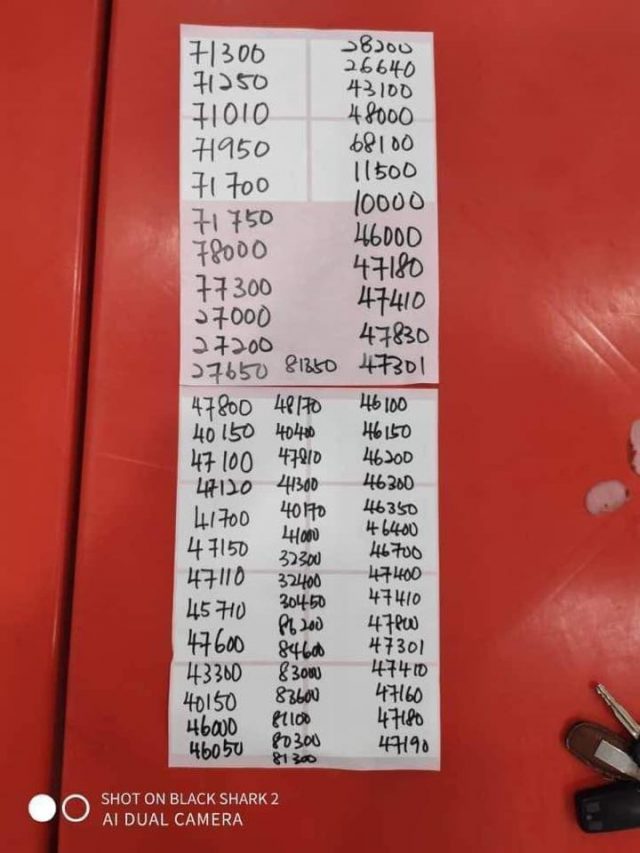 71300 28200
71250 26640
71010 43100
71950 48000
71700 68100
71750 11500
78000 10000
77300 46000
27000 47180
27200 47410
27650 81350 47830
47301
47800 48170 46100
40150 40400 46150
47100 47810 46200
47120 41300 46300
41700 40170 46350
47150 41000 46400
47110 32300 46700
45710 32400 47400
47600 30450 47410
43300 86200 47800
40150 84600 47301
46000 83000 47410
46050 83600 47160
81100 47180
80300 47190
81300
SHOT ON BLACK SHARK 2
AI DUAL CAMERA